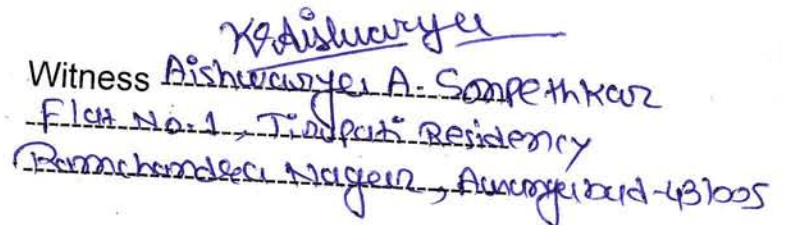 KAishwarya
Witness Aishwarya A. Sonpethkar
Flat No.1, Tirupati Residency
Ramchandra Nagar, Aurangabad-431005